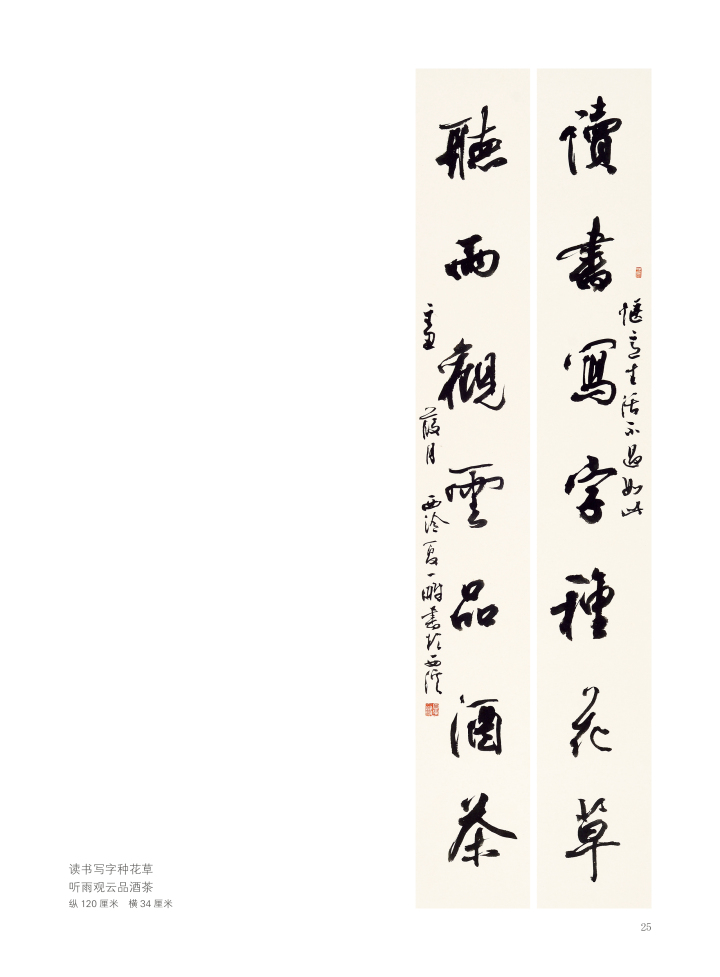 讀書寫字種花草
愜意生活不過如此
聽雨觀雲品酒茶
葭月 西泠夏一鵬書於西溪
读书写字种花草
听雨观云品酒茶
纵 120 厘米 横 34 厘米
25